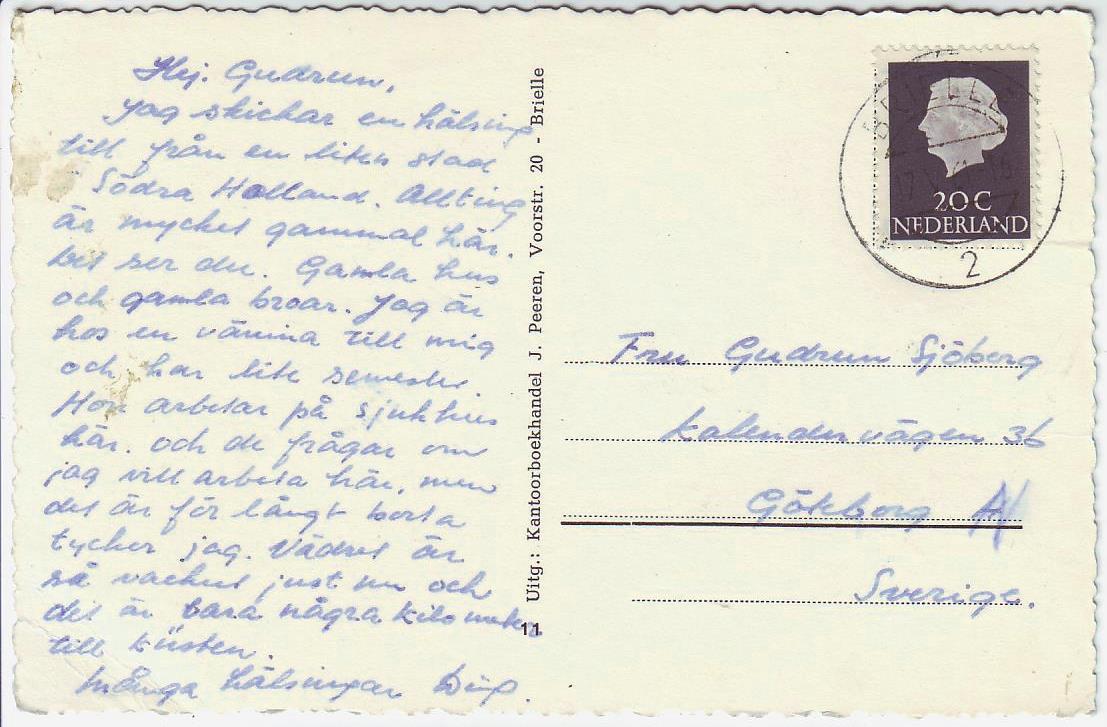 Hej. Gudrun,
Jag skickar en hälsing
till från en liten stad
i Södra Holland. Allting
är mycket gammal här.
Det ser du. Gamla hus
och gamla broar. Jag är
hos en väninna till mig
och har lite semester
Hon arbetar på sjukhus
här. och de frågar om
jag vill arbeta här, men
det är för långt borta
tycker jag. Vädret är
så vackert just nu och
det är bara några kilometer
till kusten.
Många hälsingar
Uitg.: Kantoorboekhandel J. Peeren, Voorstr. 20 - Brielle
11
BRIELLE
2
20C
NEDERLAND
Fru Gudrun Sjöberg
Kalendervägen 36
Göteborg
Sverige.